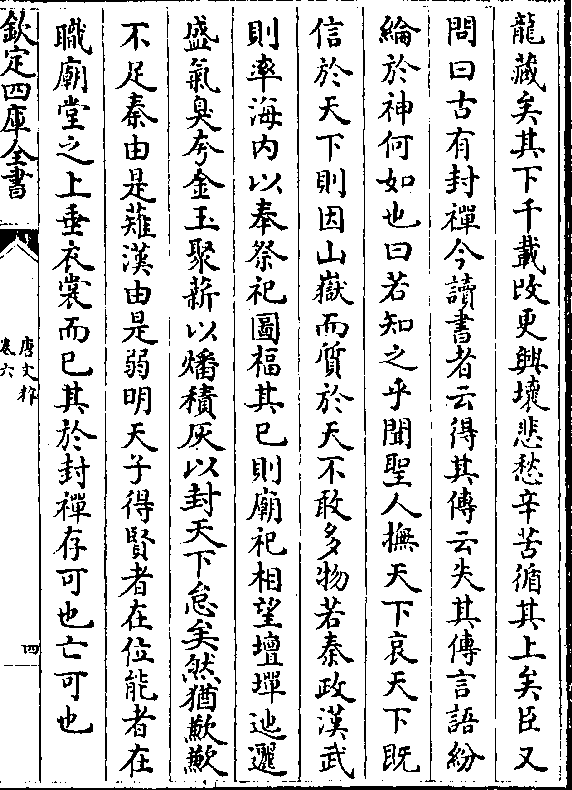 龍藏矣其下千載改更興壞悲愁辛苦循其上矣臣又
問曰古有封禪今讀書者云得其傳云失其傳言語紛
綸於神何如也曰若知之乎聞聖人撫天下哀天下既
信於天下則因山嶽而質於天不敢多物若秦政漢武
則率海内以奉祭祀圖福其已則廟祀相望壇墠迆邐
盛氣臭夸金玉聚薪以燔積灰以封天下怠矣然猶歉歉
不足秦由是薙漢由是弱明天子得賢者在位能者在
職廟堂之上垂衣裳而已其於封禪存可也亡可也
欽定四庫全書
唐文粹
卷六
四